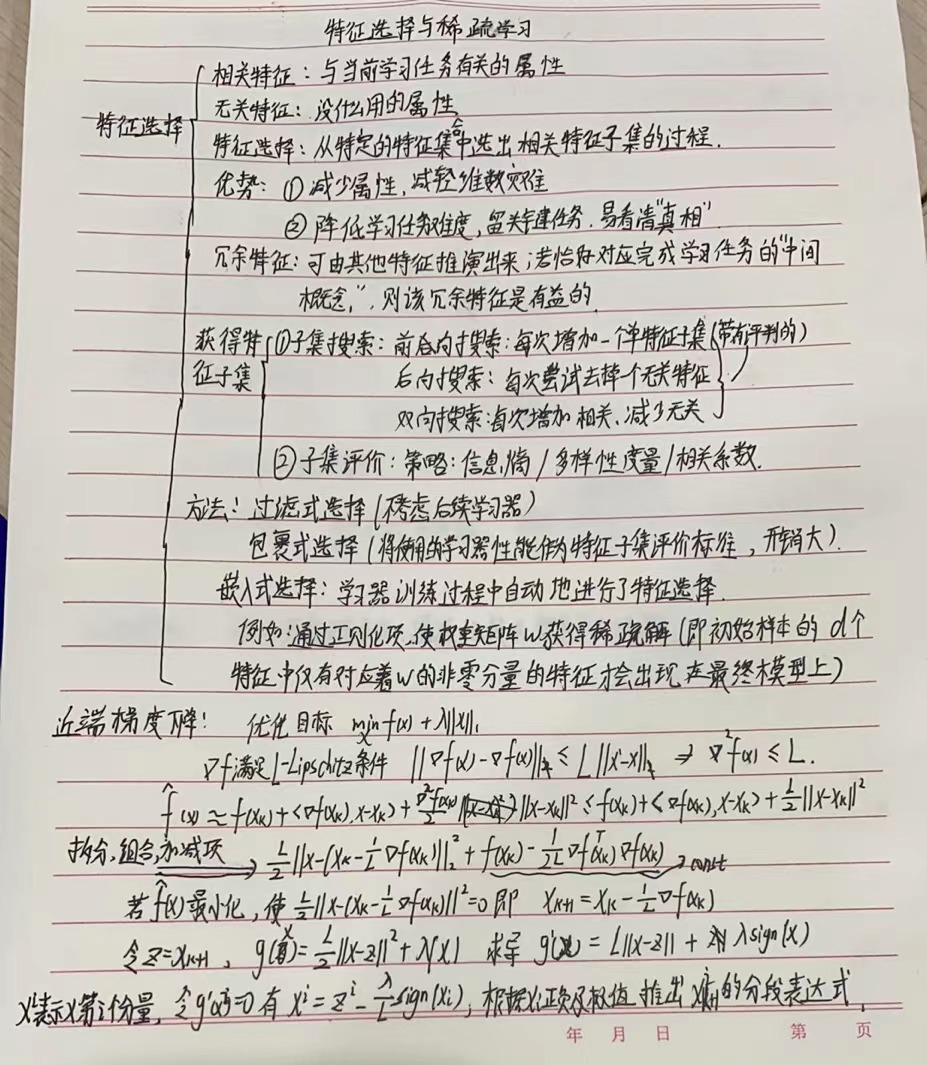 特征选择与稀疏学习
相关特征：与当前学习任务有关的属性
无关特征：没什么用的属性
特征选择
特征选择：从特定的特征集合中选出相关特征子集的过程.
优势：① 减少属性，减轻维数灾难
② 降低学习任务难度，留关键任务，易看清"真相"
冗余特征：可由其他特征推演出来；若恰好对应完成学习任务的"中间
概念"，则该冗余特征是有益的.
获得特征子集
①子集搜索：前后向搜索：每次增加一个单特征子集(带有评判的)
后向搜索：每次尝试去掉一个无关特征
双向搜索：每次增加相关、减少无关
②子集评价：策略：信息熵/多样性度量/相关系数.
方法：过滤式选择(不考虑后续学习器)
包裹式选择(将使用的学习器性能作为特征子集评价标准，开销大).
嵌入式选择：学习器训练过程中自动地进行了特征选择.
例如：通过正则化项，使权重矩阵w获得稀疏解(即初始样本的d个
特征中仅有对应着w的非零分量的特征才会出现在最终模型上)
近端梯度下降： 优化目标 min_x f(x)+λ||x||₁
∇f满足L-Lipschitz条件 ||∇f(x')-∇f(x)||₂ ≤ L||x'-x||₂ ⇒ ∇²f(x) ≤ L.
f̂(x) ≈ f(xₖ)+<∇f(xₖ), x-xₖ>+∇²f(xₖ)/2 ||x-xₖ||² ≤ f(xₖ)+<∇f(xₖ), x-xₖ>+L/2||x-xₖ||²
拆分，组合，加减项 → L/2||x-(xₖ-1/L∇f(xₖ))||₂²+f(xₖ)-1/2L ∇f(xₖ)ᵀ∇f(xₖ) → const
若f̂(x)最小化，使L/2||x-(xₖ-1/L∇f(xₖ))||²=0 即 xₖ₊₁=xₖ-1/L∇f(xₖ)
令z=xₖ₊₁，g(x)=L/2||x-z||²+λ|x| 求导 g'(x)=L||x-z||+λsign(x)
xⁱ表示x第i个分量，令g'(xⁱ)=0 有 xⁱ=zⁱ-λ/L sign(xᵢ)，根据xᵢ正负及极值推出xⁱₖ₊₁的分段表达式，
年 月 日 第 页